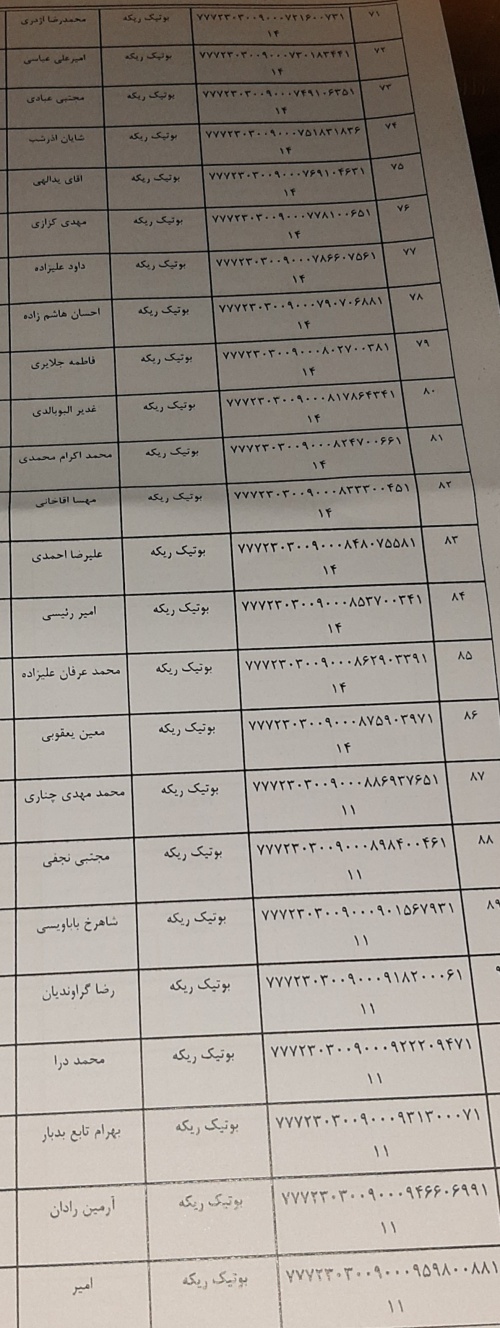 ۷۱ ۷۷۷۲۳۰۳۰۰۹۰۰۰۷۲۱۶۰۰۷۳۱ بوتیک ریکه محمدرضا اژدری
۱۴
۷۲ ۷۷۷۲۳۰۳۰۰۹۰۰۰۷۳۰۱۸۳۴۴۱ بوتیک ریکه امیرعلی عباسی
۱۴
۷۳ ۷۷۷۲۳۰۳۰۰۹۰۰۰۷۴۹۱۰۶۳۵۱ بوتیک ریکه مجتبی عبادی
۱۴
۷۴ ۷۷۷۲۳۰۳۰۰۹۰۰۰۷۵۱۸۳۱۸۳۶ بوتیک ریکه شایان اذرشب
۱۴
۷۵ ۷۷۷۲۳۰۳۰۰۹۰۰۰۷۶۹۱۰۴۶۳۱ بوتیک ریکه اقای یدالهی
۱۴
۷۶ ۷۷۷۲۳۰۳۰۰۹۰۰۰۷۷۸۱۰۰۶۵۱ بوتیک ریکه مهدی کزازی
۱۴
۷۷ ۷۷۷۲۳۰۳۰۰۹۰۰۰۷۸۶۶۰۷۵۶۱ بوتیک ریکه داود علیزاده
۱۴
۷۸ ۷۷۷۲۳۰۳۰۰۹۰۰۰۷۹۰۷۰۶۸۸۱ بوتیک ریکه احسان هاشم زاده
۱۴
۷۹ ۷۷۷۲۳۰۳۰۰۹۰۰۰۸۰۲۷۰۰۳۸۱ بوتیک ریکه فاطمه جلایری
۱۴
۸۰ ۷۷۷۲۳۰۳۰۰۹۰۰۰۸۱۷۸۶۴۳۴۱ بوتیک ریکه غدیر البوبالدی
۱۴
۸۱ ۷۷۷۲۳۰۳۰۰۹۰۰۰۸۲۴۷۰۰۶۶۱ بوتیک ریکه محمد اکرام محمدی
۱۴
۸۲ ۷۷۷۲۳۰۳۰۰۹۰۰۰۸۳۳۳۰۰۴۵۱ بوتیک ریکه مهسا اقاخانی
۱۴
۸۳ ۷۷۷۲۳۰۳۰۰۹۰۰۰۸۴۸۰۷۵۵۸۱ بوتیک ریکه علیرضا احمدی
۱۴
۸۴ ۷۷۷۲۳۰۳۰۰۹۰۰۰۸۵۳۷۰۰۳۴۱ بوتیک ریکه امیر رئیسی
۱۴
۸۵ ۷۷۷۲۳۰۳۰۰۹۰۰۰۸۶۲۹۰۳۳۹۱ بوتیک ریکه محمد عرفان علیزاده
۱۴
۸۶ ۷۷۷۲۳۰۳۰۰۹۰۰۰۸۷۵۹۰۳۹۷۱ بوتیک ریکه معین یعقوبی
۱۴
۸۷ ۷۷۷۲۳۰۳۰۰۹۰۰۰۸۸۶۹۳۷۶۵۱ بوتیک ریکه محمد مهدی چناری
۱۱
۸۸ ۷۷۷۲۳۰۳۰۰۹۰۰۰۸۹۸۴۰۰۴۶۱ بوتیک ریکه مجتبی نجفی
۱۱
۸۹ ۷۷۷۲۳۰۳۰۰۹۰۰۰۹۰۱۵۶۷۹۳۱ بوتیک ریکه شاهرخ باباویسی
۱۱
۷۷۷۲۳۰۳۰۰۹۰۰۰۹۱۸۲۰۰۰۶۱ بوتیک ریکه رضا گراوندیان
۱۱
۷۷۷۲۳۰۳۰۰۹۰۰۰۹۲۲۲۰۹۴۷۱ بوتیک ریکه محمد درا
۱۱
۷۷۷۲۳۰۳۰۰۹۰۰۰۹۳۱۳۰۰۰۷۱ بوتیک ریکه بهرام تابع بدبار
۱۱
۷۷۷۲۳۰۳۰۰۹۰۰۰۹۴۶۶۰۶۹۹۱ بوتیک ریکه آرمین رادان
۱۱
۷۷۷۲۳۰۳۰۰۹۰۰۰۹۵۹۸۰۰۸۸۱ بوتیک ریکه امیر
۱۱